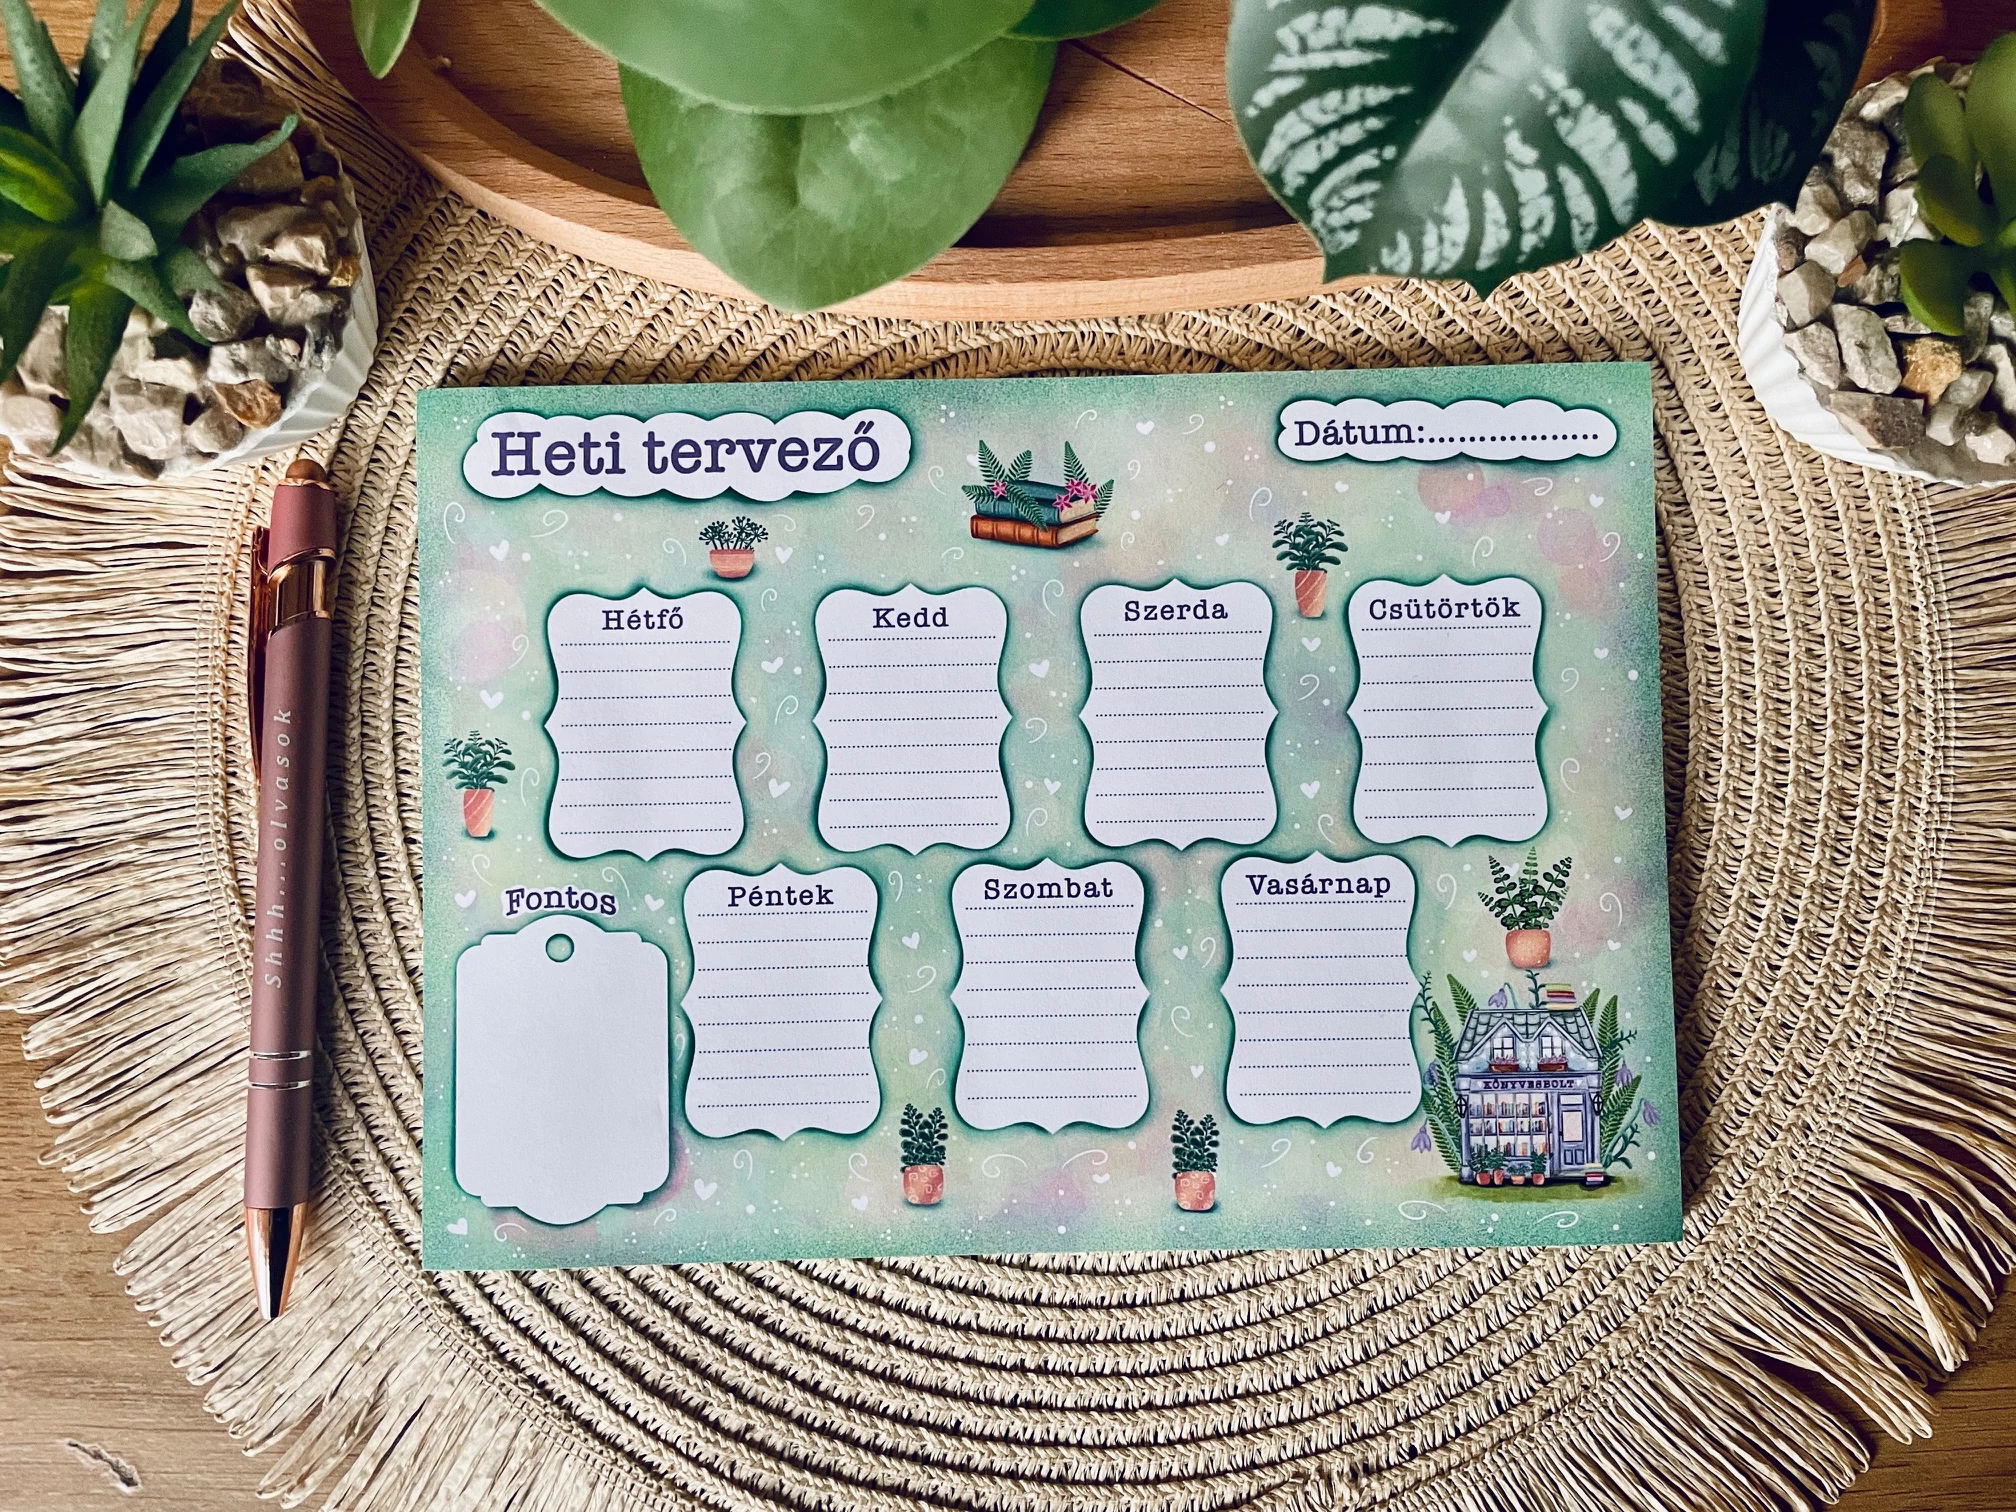 Heti tervező
Dátum:.................
Hétfő
Kedd
Szerda
Csütörtök
Fontos
Péntek
Szombat
Vasárnap
KÖNYVESBOLT
Shhh...olvasok